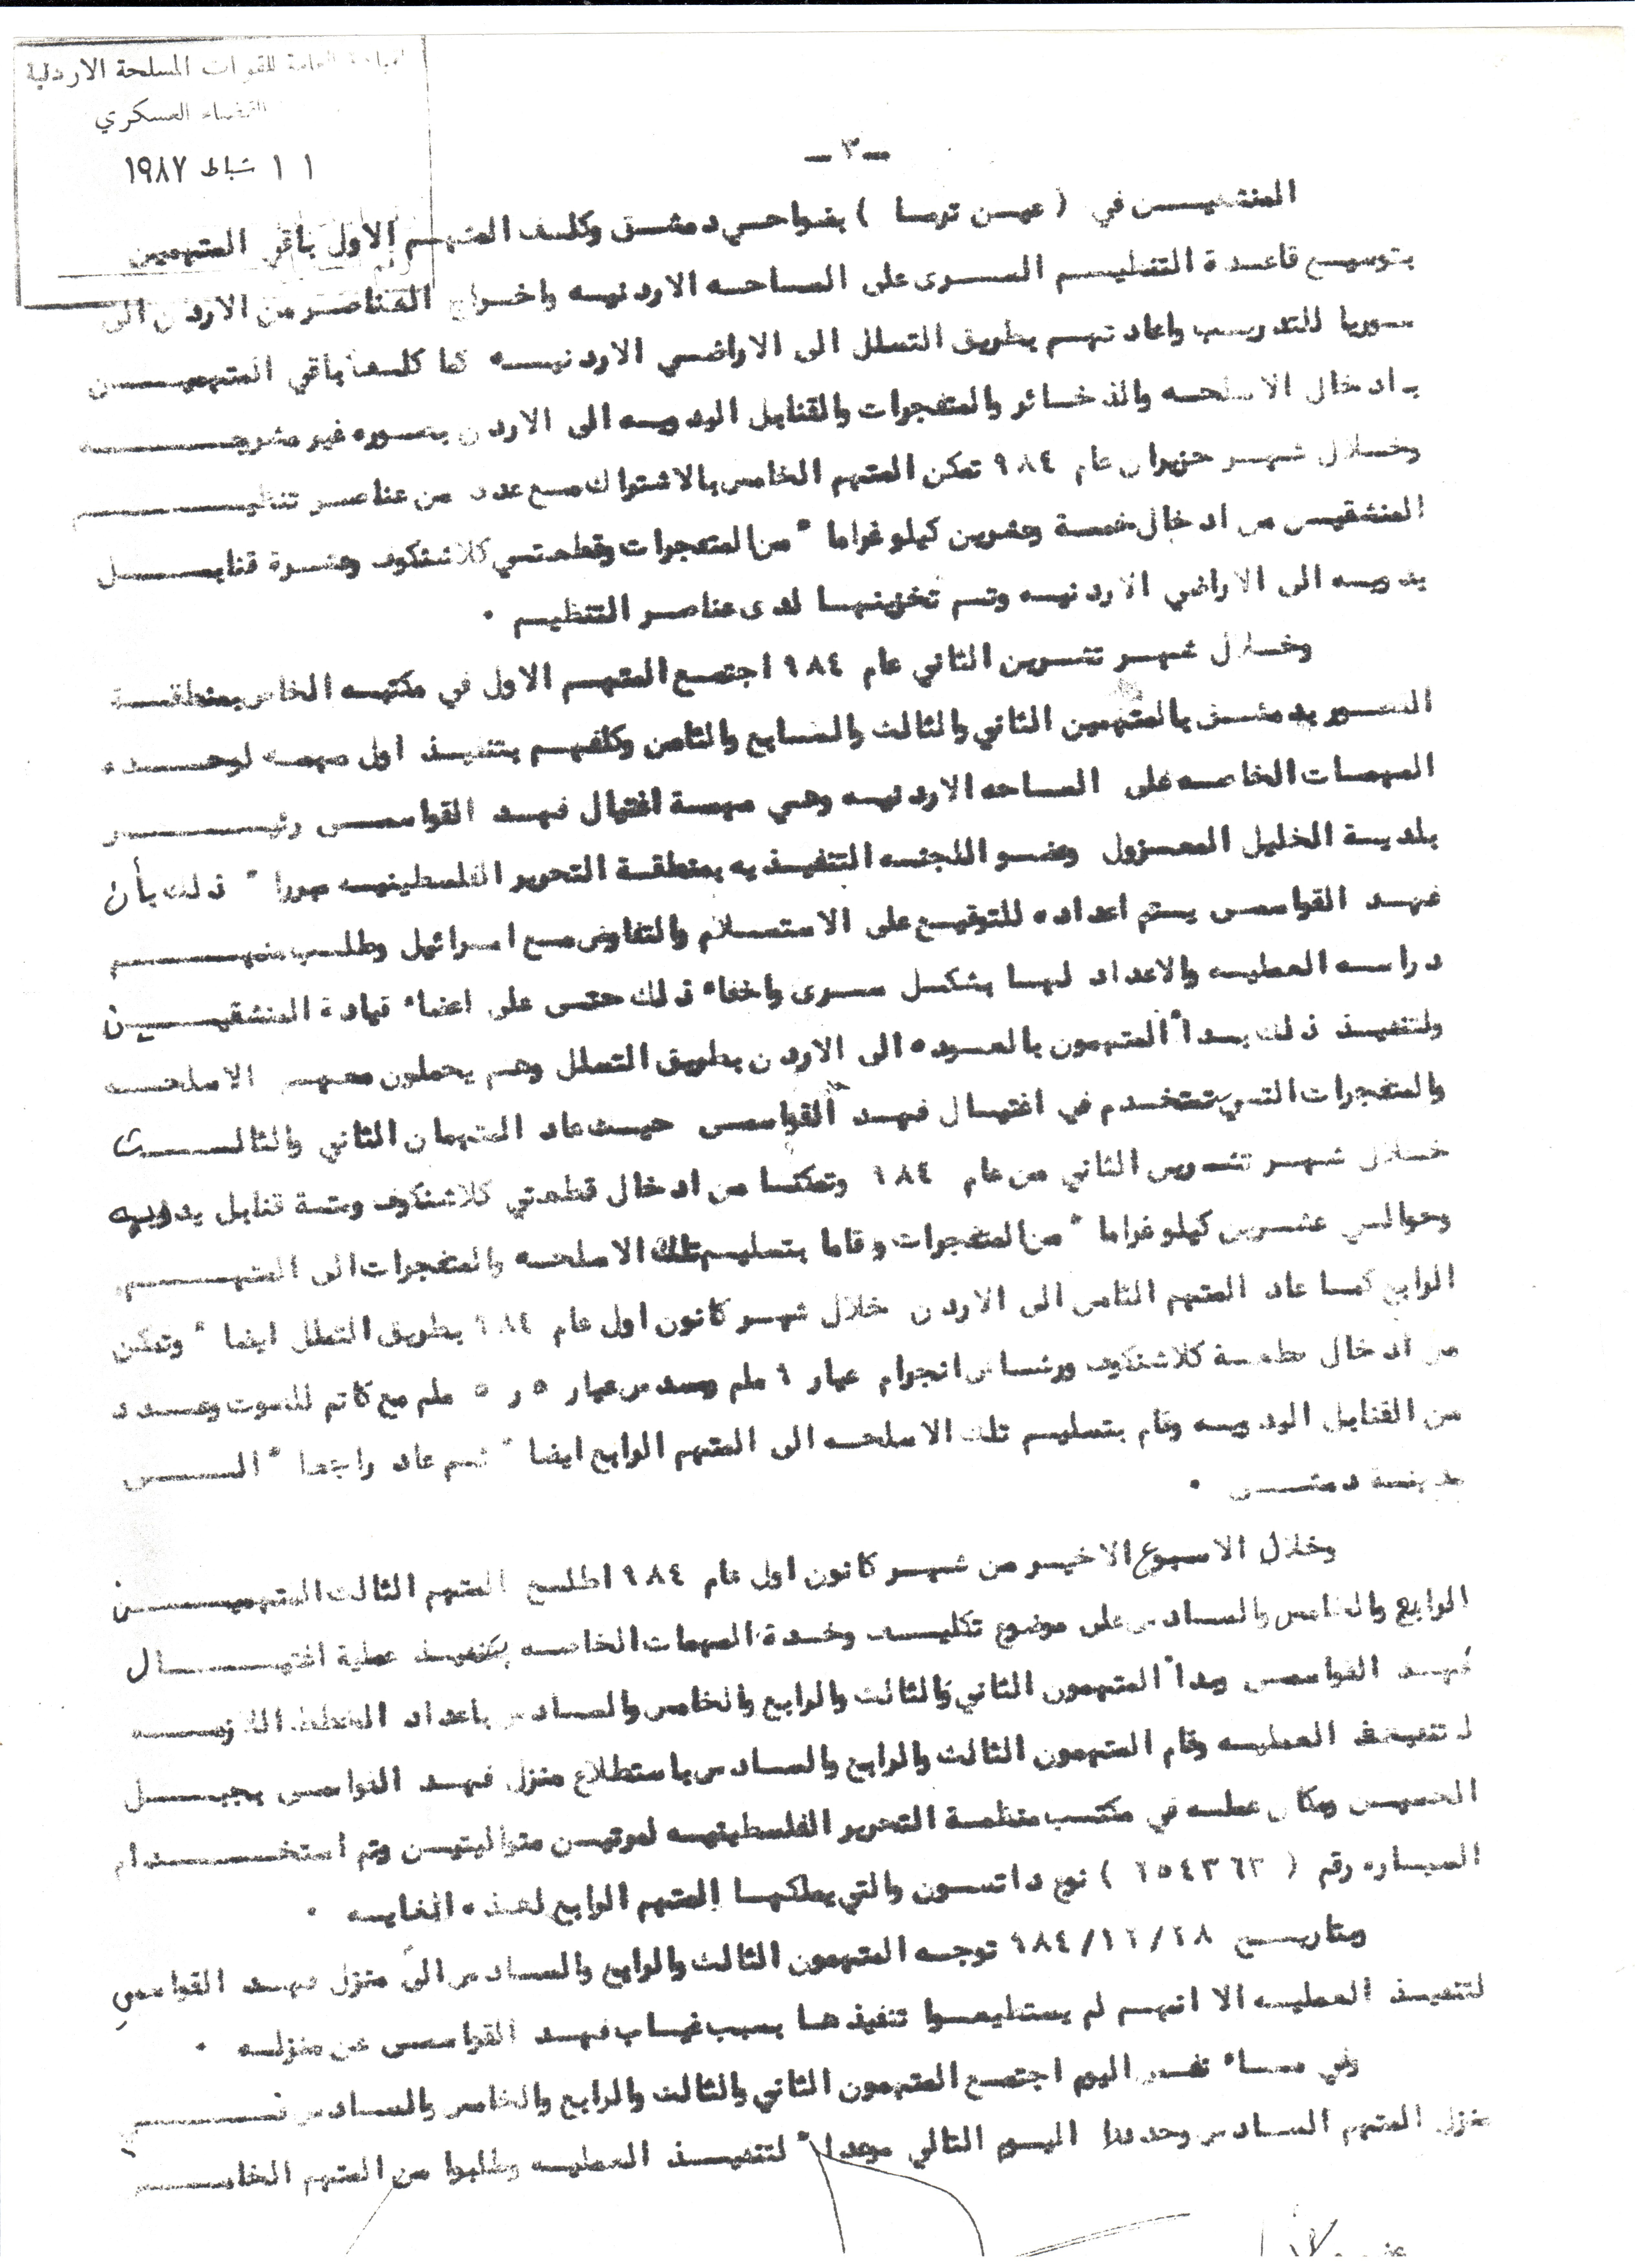 القيادة العامة للقوات المسلحة الاردنية
القضاء العسكري
١١ شباط ١٩٨٧
ـ ٣ ـ
المنشقيـن في ( عيـن ترمـا ) بضواحـي دمشـق وكلـف المتهـم الاول باقي المتهمين
بتوسيـع قاعـدة التنظيـم السـرى على الساحـه الاردنيـه واخـراج العناصـر من الاردن الى
سـوريا للتدريـب واعادتهـم بطريق التسلل الى الاراضـي الاردنيـه كما كلـف باقي المتهميـن
بادخال الاسلحـه والذخـائر والمتفجرات والقنابل اليدويـه الى الاردن بصـوره غير مشروعـه
وخـلال شهـر حزيران عام ٩٨٤ تمكن المتهم الخامس بالاشتراك مـع عدد من عناصـر تنظيـم
المنشقيـن من ادخال خمسة وعشرين كيلو غراما" من المتفجرات وقطعتـي كلاشنكوف وعشـرة قنابـل
يدويـه الى الاراضي الاردنيـه وتـم تخزينهـا لدى عناصـر التنظيـم ٠
وخـلال شهـر تشـرين الثاني عام ٩٨٤ اجتمـع المتهـم الاول في مكتبـه الخاص بمنطقـة
بدمشـق بالمتهمين الثاني والثالث والسابع والثامن وكلفهـم بتنفيـذ اول مهمـه لوحـده
المهمـات الخاصـه على الساحـه الاردنيـه وهـي مهمـة اغتيال فهـد القواسمـي رئيـس
بلديـة الخليل المعـزول وعضـو اللجنـه التنفيـذيه بمنظمـة التحرير الفلسطينيـه مبررا" ذلك بأن
فهـد القواسمي يتم اعداده للتوقيـع على الاستسـلام والتفاوض مـع اسرائيل وطلـب منهـم
دراسـه العمليـه والاعداد لهـا بشكـل سـرى واخفاء ذلك حتـى على اعضاء قيادة المنشقيـن
ولتنفيـذ ذلك بـدأ المتهمون بالعـوده الى الاردن بطريق التسلل وهـم يحملون معهـم الاسلحـه
والمتفجرات التـي تستخدم في اغتيـال فهـد القواسمي حيـث عاد المتهمان الثاني والثالـث
خـلال شهـر تشـرين الثاني من عام ٩٨٤ وتمكنـا من ادخال قطعتي كلاشنكوف وستـة قنابل يدويه
وحوالـي عشـرين كيلو غراما" من المتفجرات وقاما بتسليـم تلك الاسلحـه والمتفجرات الى المتهـم
الرابع كمـا عاد المتهم الثامن الى الاردن خلال شهـر كانون اول عام ٩٨٤ بطريق التسلل ايضا" وتمكن
من ادخال قطعـة كلاشنكوف ورشاش انجرام عيار ٩ ملم ومسدس عيار ٥ر٥ ملم مع كاتم للصوت وعـدد
من القنابل اليدويـه وقام بتسليـم تلك الاسلحـه الى المتهم الرابع ايضا" ثـم عاد راجعـا" الـى
مدينـة دمشـق ٠
وخلال الاسبوع الاخيـر من شهـر كانون اول عام ٩٨٤ اطلـع المتهم الثالث المتهميـن
الرابع والخامس والسـادس على موضوع تكليـف وحـدة المهمات الخاصـه بتنفيـذ عملية اغتيـال
فهـد القواسمي وبدأ المتهمون الثاني والثالث والرابع والخامس والسادس باعداد الخطط اللازمـه
لتنفيـذ العمليـه وقام المتهمون الثالث والرابع والسـادس باستطلاع منزل فهـد القواسمي بجبـل
الحسيـن ومكان عملـه في مكتـب منظمـة التحرير الفلسطينيـه لمرتيـن متواليتيـن وتم استخـدام
السيـاره رقم ( ٢٥٤٣٦٢ ) نوع داتسـون والتي يملكهـا المتهم الرابع لهـذه الغايـه ٠
وبتاريـخ ٩٨٤/١٢/٢٨ توجـه المتهمون الثالث والرابع والسـادس الى منزل فهـد القواسمي
لتنفيـذ العمليـه الا انهـم لم يستطيعـوا تنفيذهـا بسبب غيـاب فهـد القواسمي عن منزلـه ٠
وفي مسـاء نفـس اليوم اجتمـع المتهمون الثاني والثالث والرابع والخامس والسـادس فـي
منزل المتهم السـادس وحددوا اليـوم التالي موعدا" لتنفيـذ العمليـه وطلبوا من المتهم الخامـس